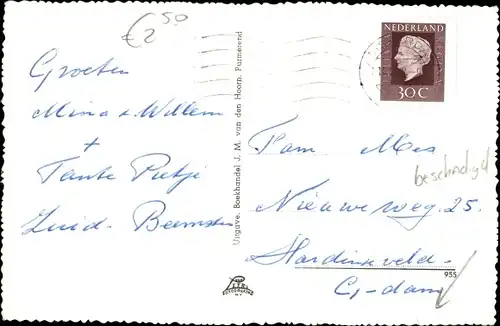 € 2,50
Groeten
Mina + Willem
+
Tante Pietje
Zuid-Beemster
Uitgave, Boekhandel J. M. van den Hoorn, Purmerend
NEDERLAND
30 C
Fam. Mes
beschadigd
Nieuweweg. 25.
Hardinxveld-
G-dam
955